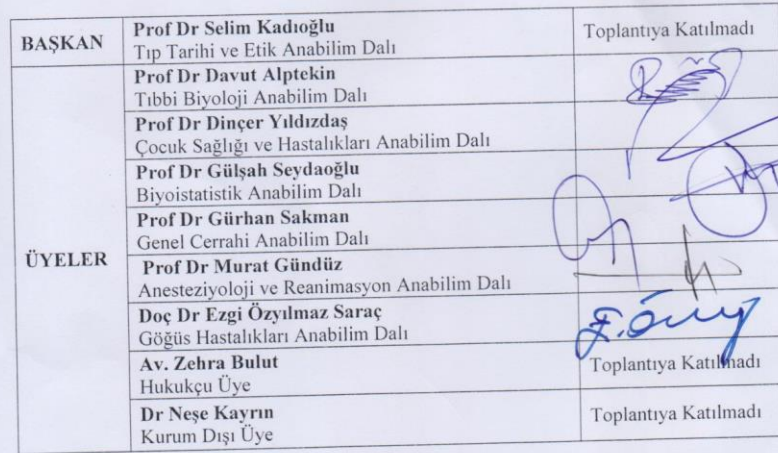 BAŞKAN
Prof Dr Selim Kadıoğlu
Tıp Tarihi ve Etik Anabilim Dalı
Toplantıya Katılmadı
ÜYELER
Prof Dr Davut Alptekin
Tıbbi Biyoloji Anabilim Dalı
Prof Dr Dinçer Yıldızdaş
Çocuk Sağlığı ve Hastalıkları Anabilim Dalı
Prof Dr Gülşah Seydaoğlu
Biyoistatistik Anabilim Dalı
Prof Dr Gürhan Sakman
Genel Cerrahi Anabilim Dalı
Prof Dr Murat Gündüz
Anesteziyoloji ve Reanimasyon Anabilim Dalı
Doç Dr Ezgi Özyılmaz Saraç
Göğüs Hastalıkları Anabilim Dalı
Av. Zehra Bulut
Hukukçu Üye
Toplantıya Katılmadı
Dr Neşe Kayrın
Kurum Dışı Üye
Toplantıya Katılmadı